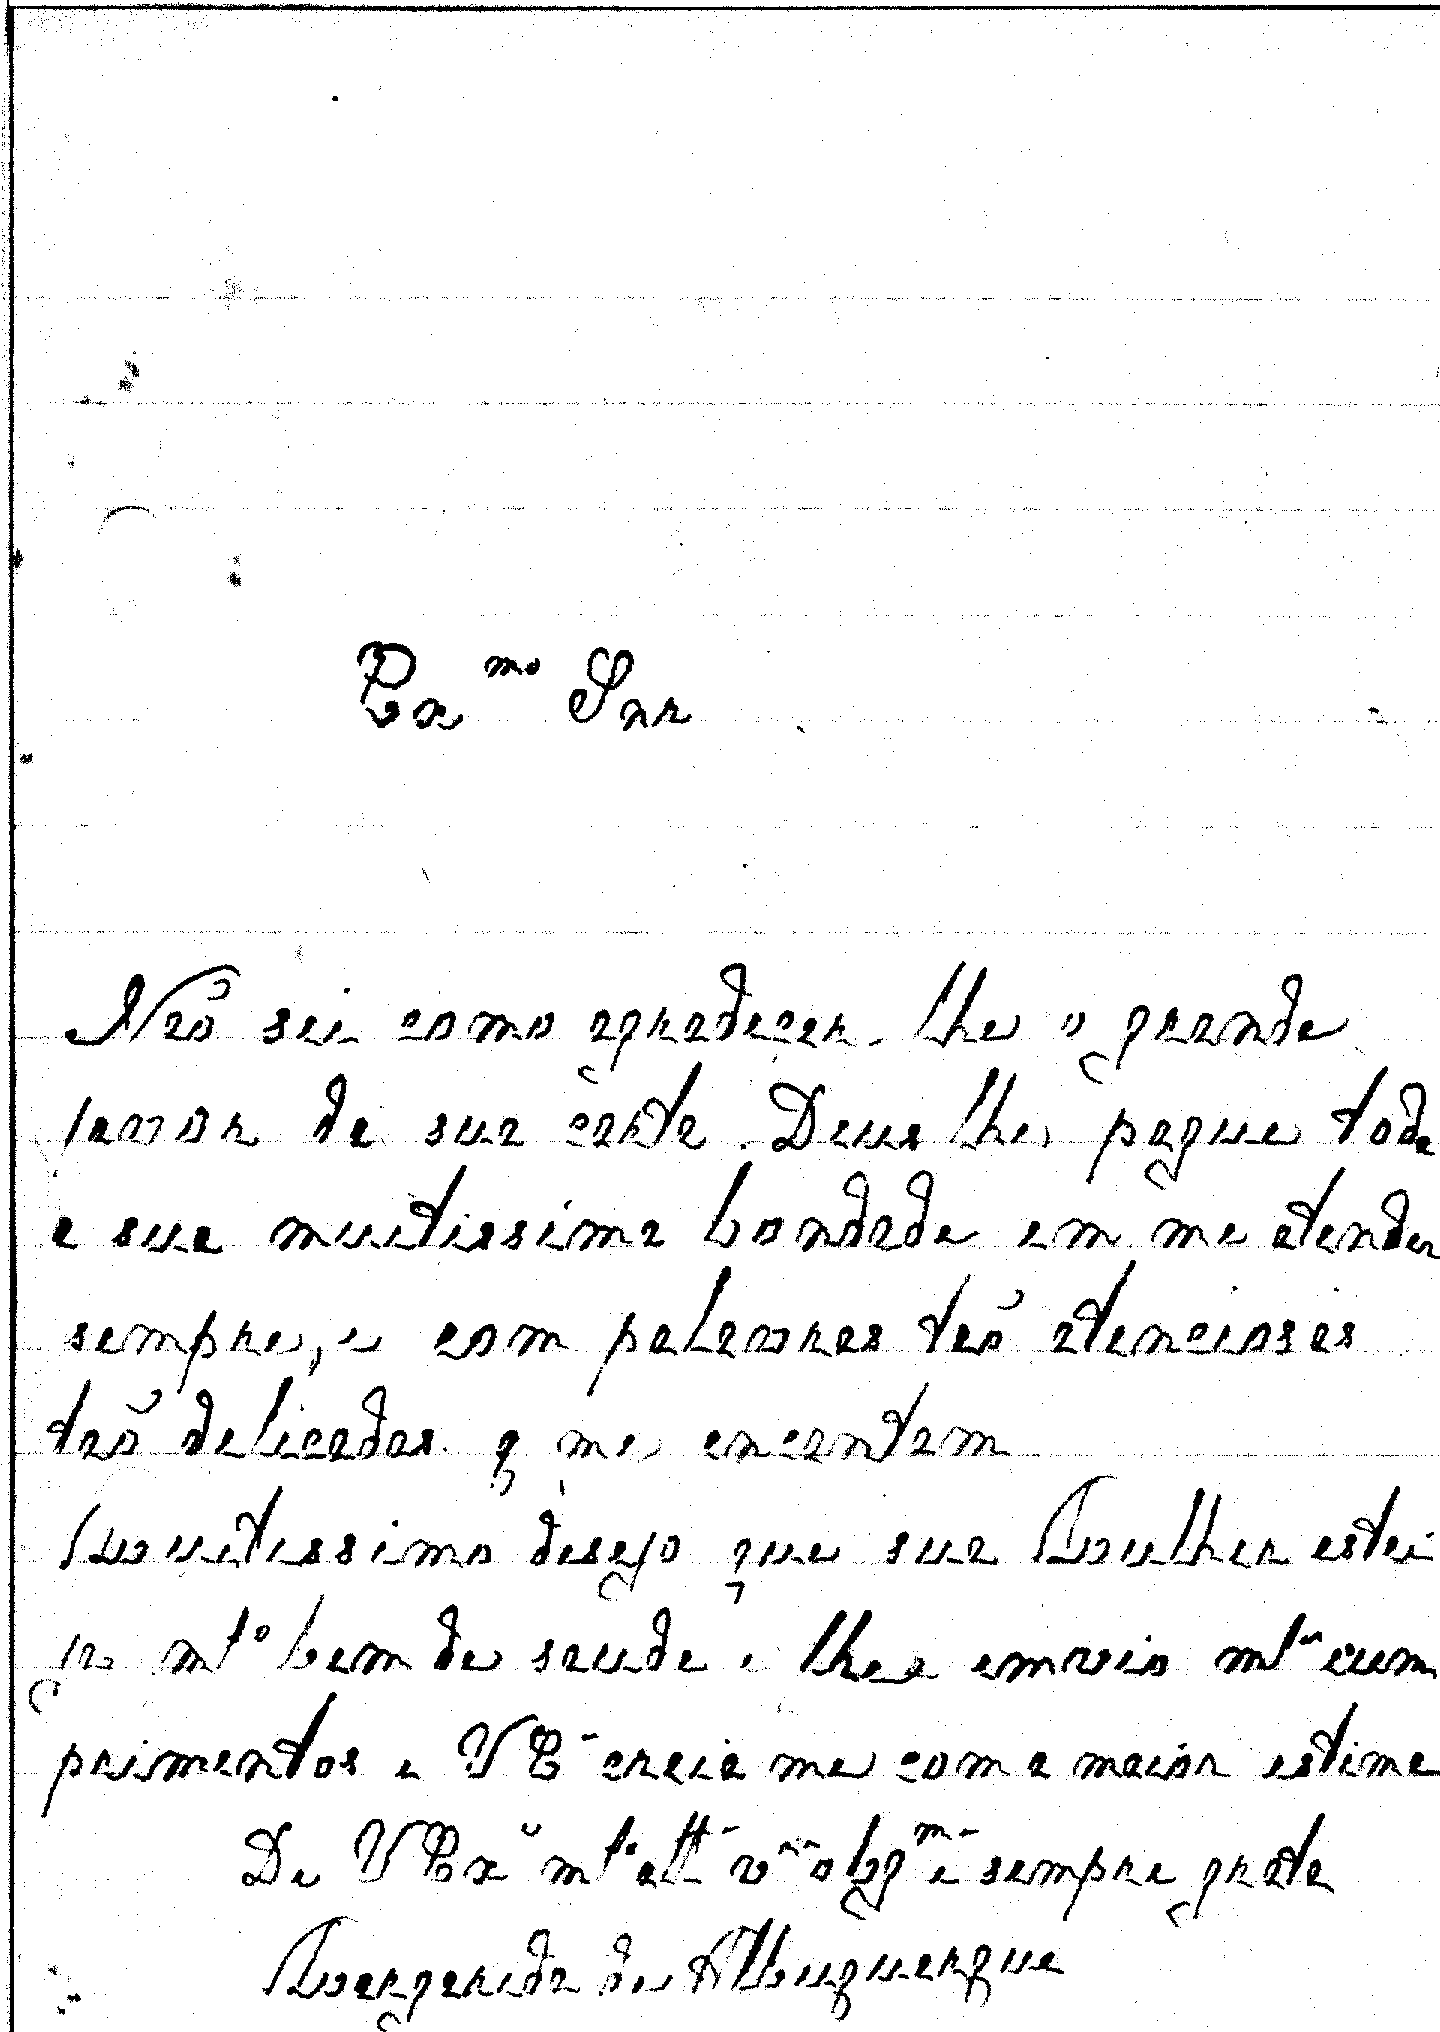 Ex mo Snr
Não sei como agradecer-lhe o grande
favor da sua carta. Deus lhe pague toda
a sua muitissima bondade em me atender
sempre, e com palavras tão atenciosas
tão delicadas q me encantam
Muitissimo desejo que sua Mulher estei
ja mto bem de saude e lhe envio mtos cum
primentos e V E creia me com a maior estima
De V Exa mto attª vra obgma e sempre grata
Margarida de Albuquerque